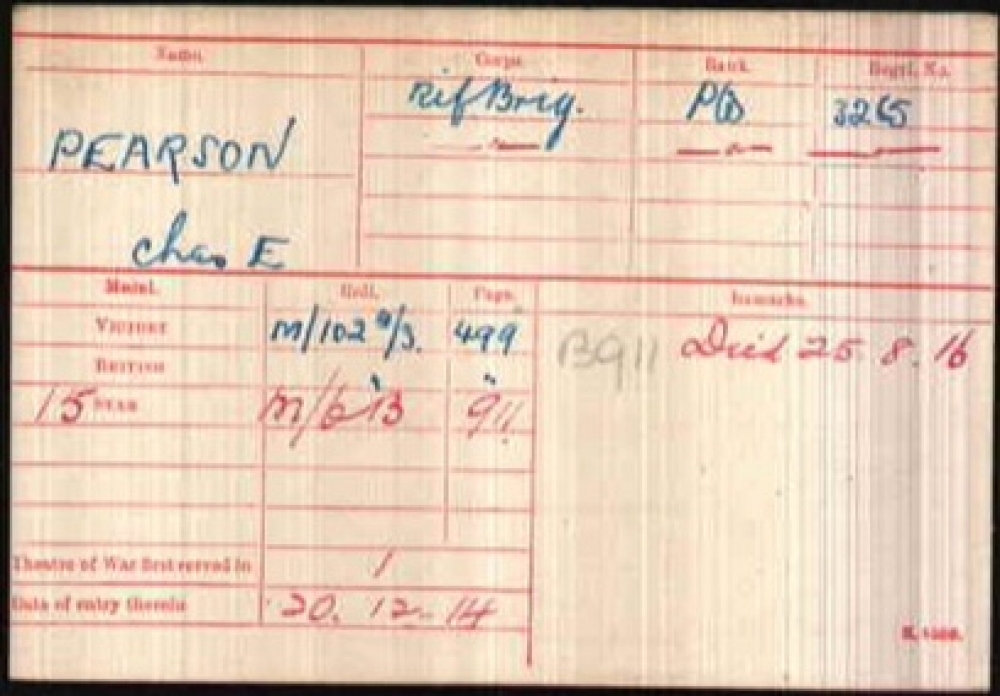 Name. Corps. Rank. Regtl. No.
Rif Brig. 3265
PEARSON
Chas E
Medal. Roll. Page. Remarks.
VICTORY M/102 9/3. 499 B911 Died 25. 8. 16
BRITISH " "
15 STAR M/6 B 911
Theatre of War first served in 1
Date of entry therein 20. 12- 14